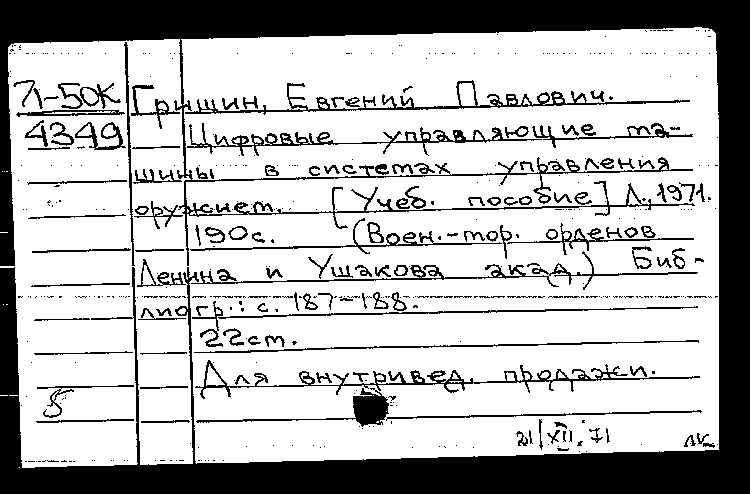 Л-50К Гришин, Евгений Павлович.
4349 Цифровые управляющие ма-
шины в системах управления
оружием. [Учеб. пособие] Л., 1971.
190с. (Воен.-мор. орденов
Ленина и Ушакова акад.) Биб-
лиогр.: с. 187-188.
22см.
Для внутривед. продажи.
5
21/XII.71